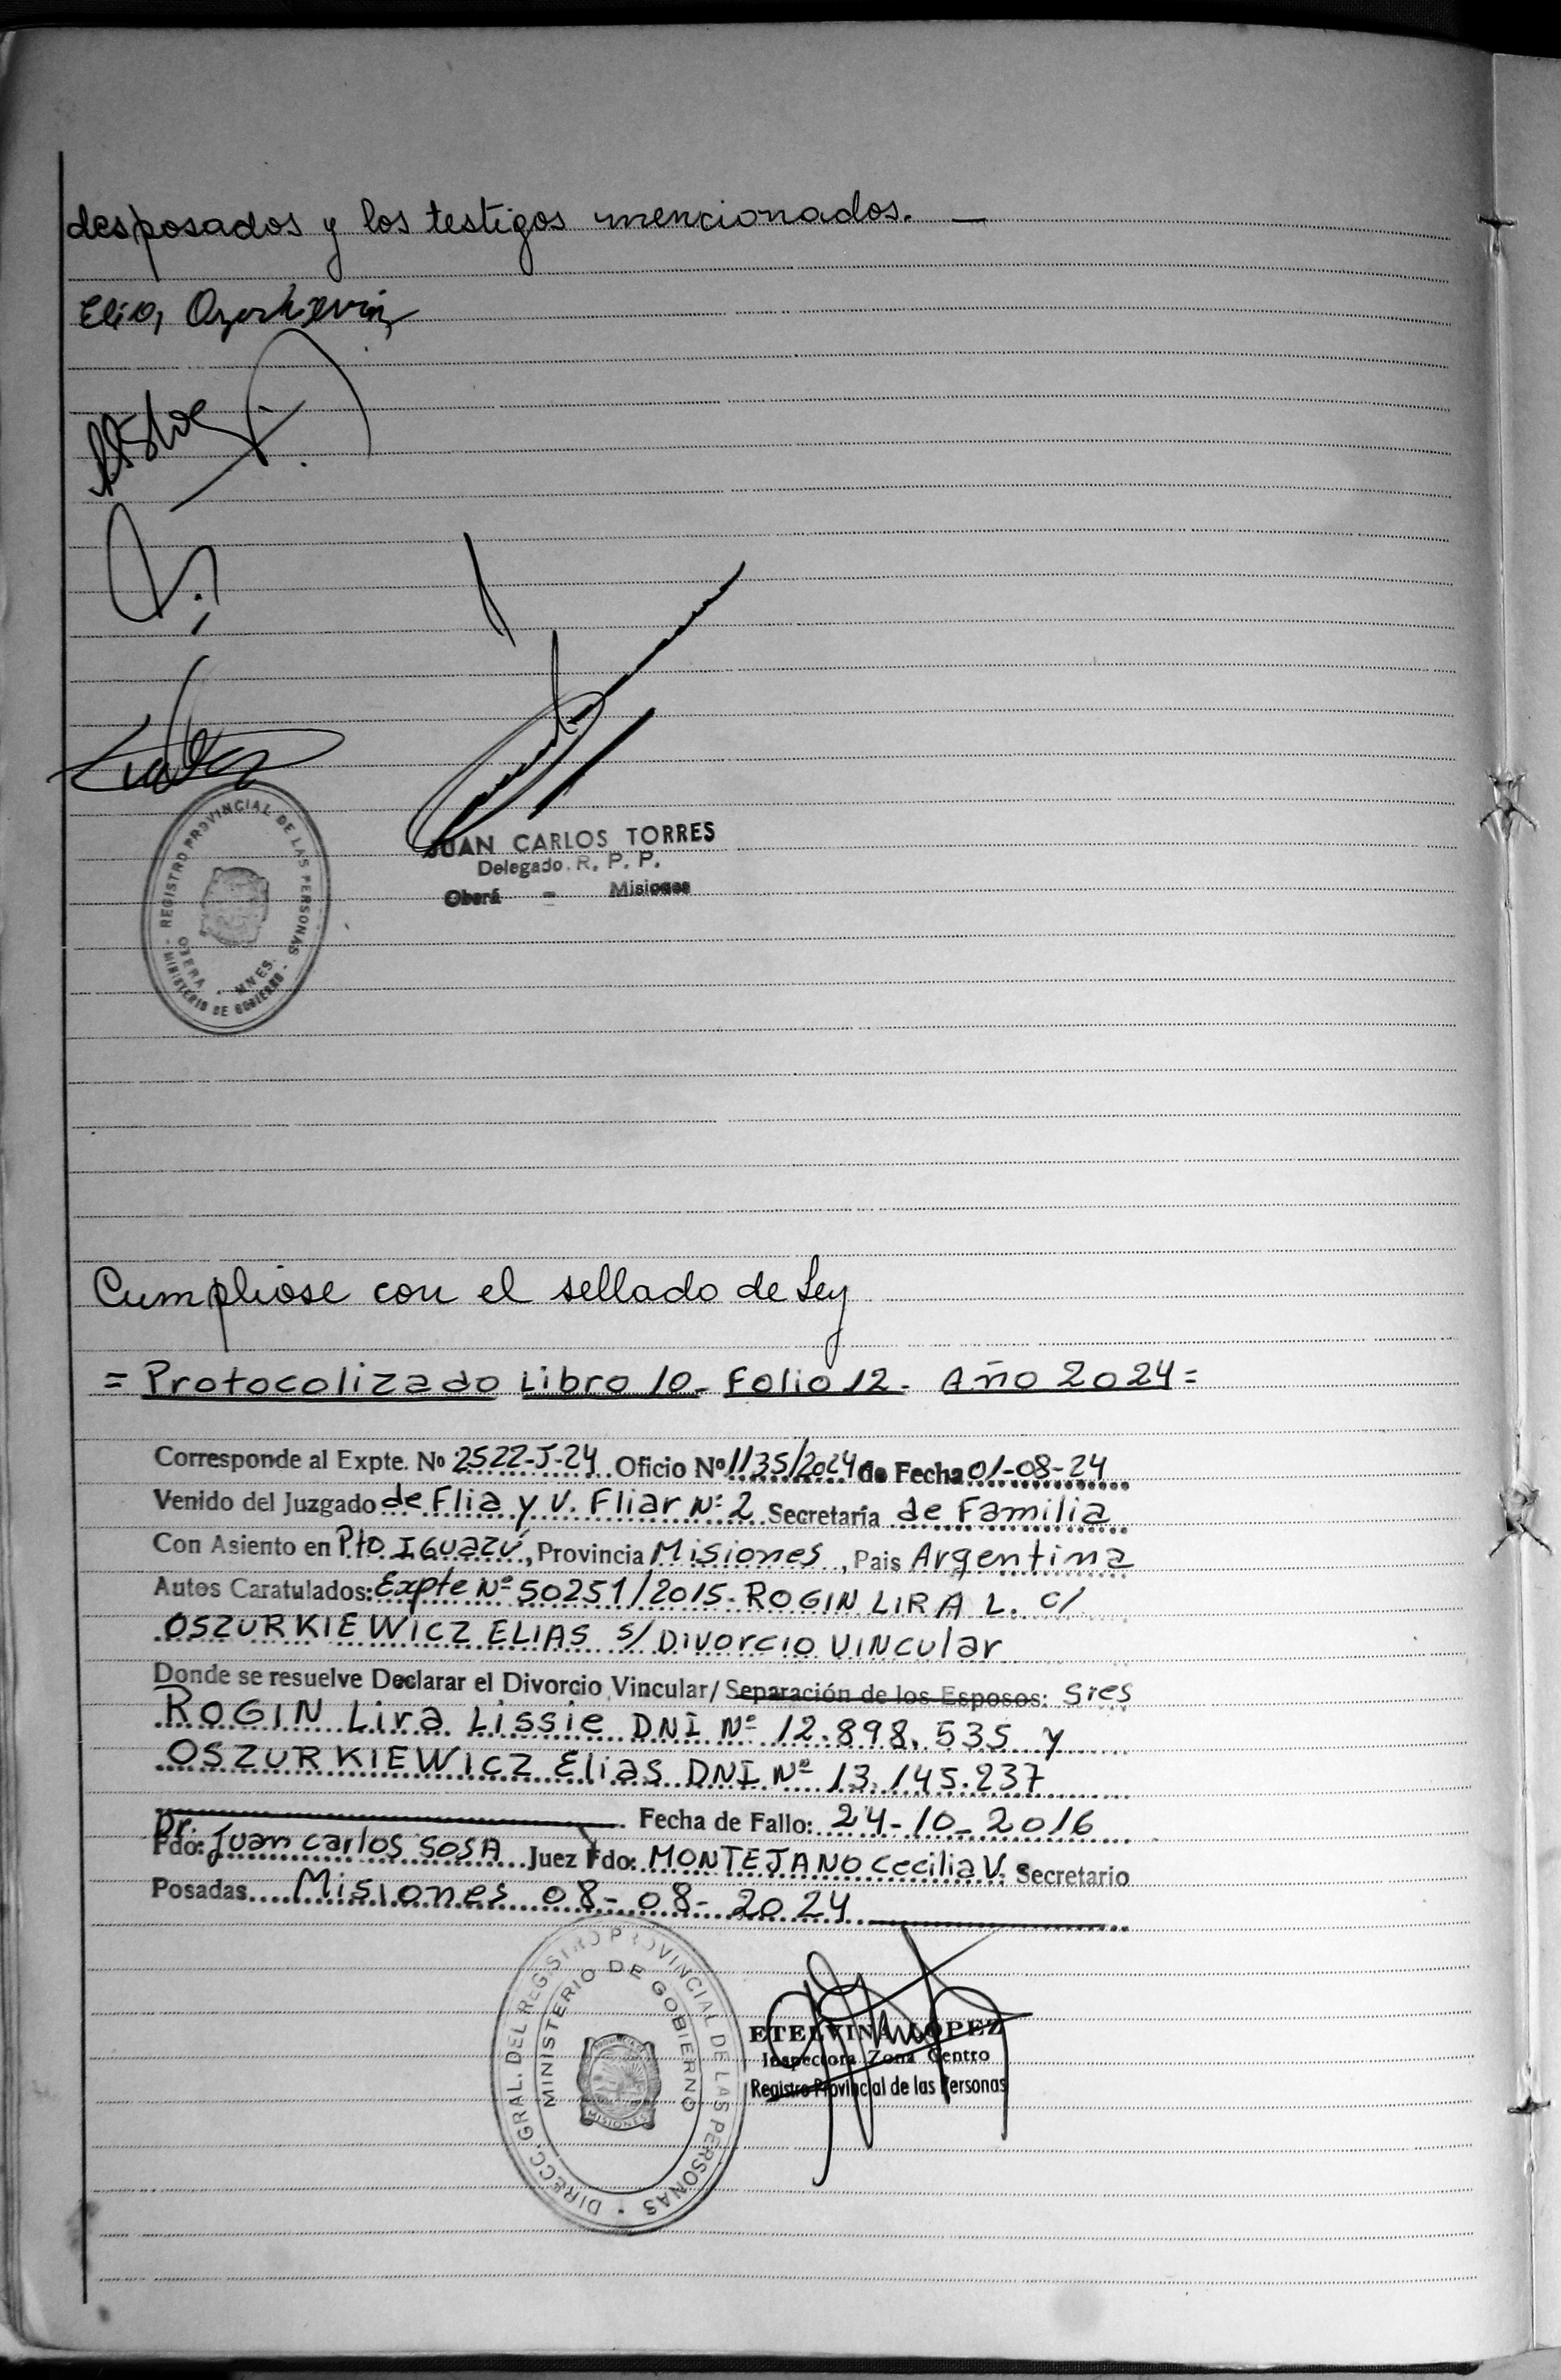 desposados y los testigos mencionados. —
JUAN CARLOS TORRES
Delegado. R. P. P.
Oberá - Misiones
REGISTRO PROVINCIAL DE LAS PERSONAS
OBERA - MNES.
MINISTERIO DE GOBIERNO
Cumpliose con el sellado de Ley
= Protocolizado Libro 10- Folio 12- Año 2024=
Corresponde al Expte. No 2522-J-24 Oficio Nº 1135/2024 de Fecha 01-08-24
Venido del Juzgado de Flia y V. Fliar Nº 2 Secretaría de Familia
Con Asiento en Pto IGuazú, Provincia Misiones, Pais Argentina
Autos Caratulados: Expte Nº 50251/2015- ROGIN LIRA L. c/
OSZURKIEWICZ ELIAS s/ Divorcio Vincular
Donde se resuelve Declarar el Divorcio Vincular/ Separación de los Esposos: Sres
ROGIN Lira Lissie DNI Nº 12.898.535 y
OSZURKIEWICZ Elias DNI Nº 13.145.237
Fecha de Fallo: 24-10-2016
Dr.
Fdo: Juan Carlos SOSA Juez Fdo: MONTEJANO Cecilia V. Secretario
Posadas Misiones 08-08-2024
DIRECC. GRAL. DEL REGISTRO PROVINCIAL DE LAS PERSONAS
MINISTERIO DE GOBIERNO
MISIONES
ETELVINA LOPEZ
Inspectora Zona Centro
Registro Provincial de las Personas